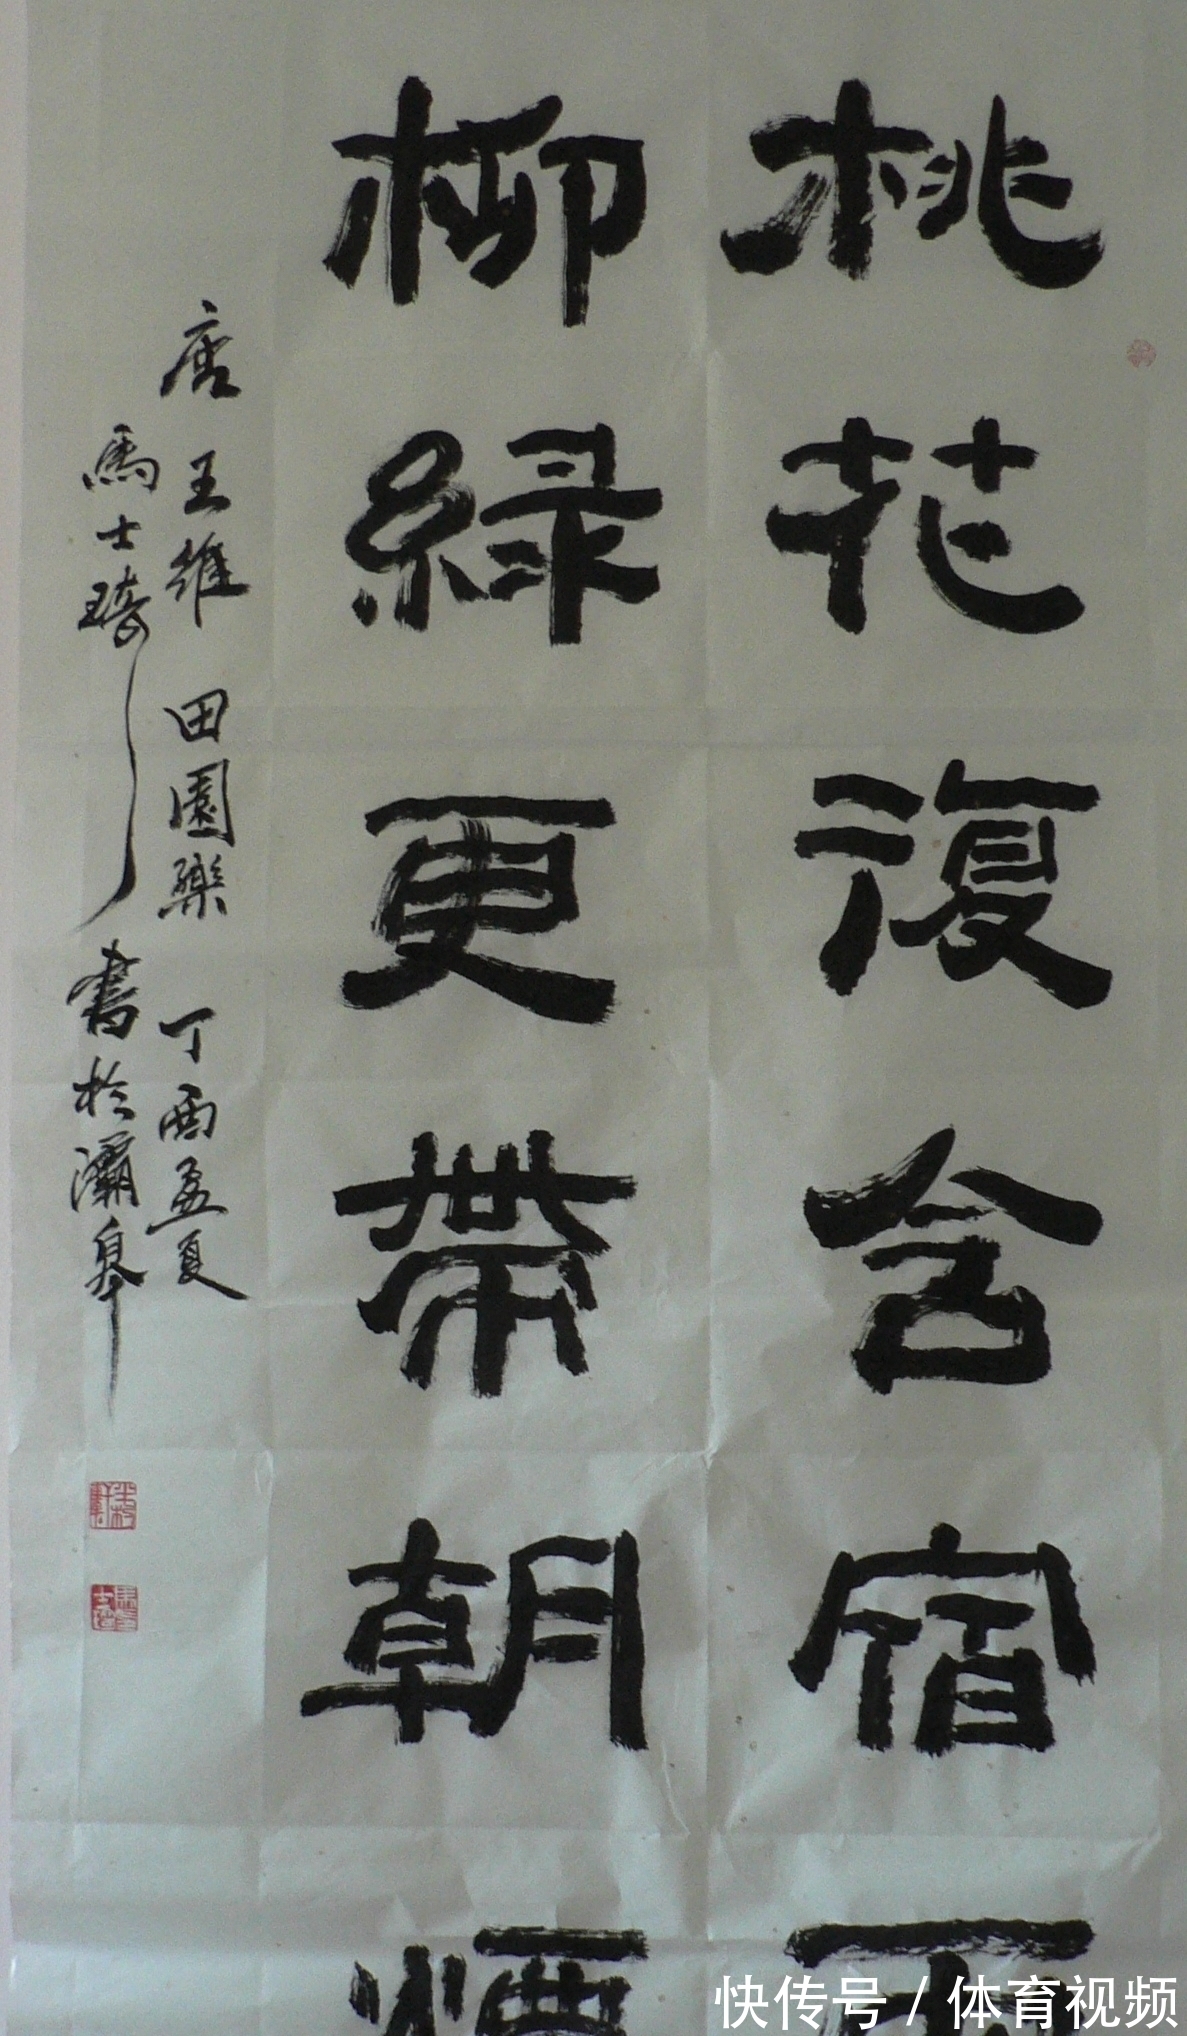 桃花復含宿雨
柳緑更帶朝煙
唐王維田園樂丁酉孟夏
馬士琦書於灞皋
快传号/体育视频